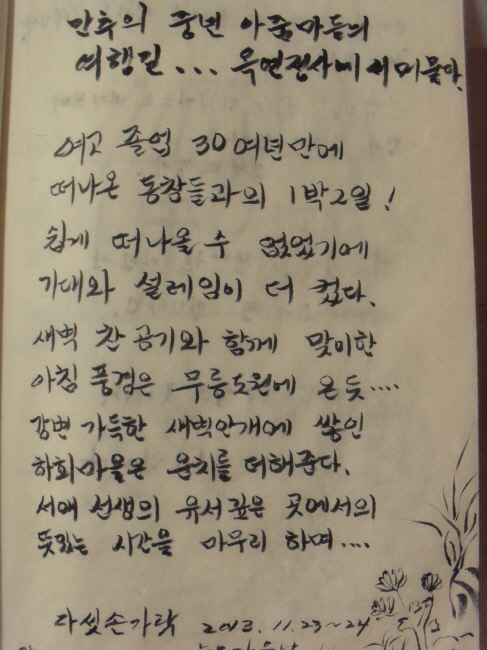 만추의 중년 아줌마들의
여행길... 옥연정사에서 머물다.
여고 졸업 30여년만에
떠나온 동창들과의 1박2일!
쉽게 떠나올 수 없었기에
기대와 설레임이 더 컸다.
새벽 찬 공기와 함께 맞이한
아침 풍경은 무릉도원에 온 듯....
강변 가득한 새벽안개에 쌓인
하회마을은 운치를 더해준다.
서애 선생의 유서깊은 곳에서의
뜻있는 시간을 마무리 하며....
다섯손가락 2013. 11. 23~24